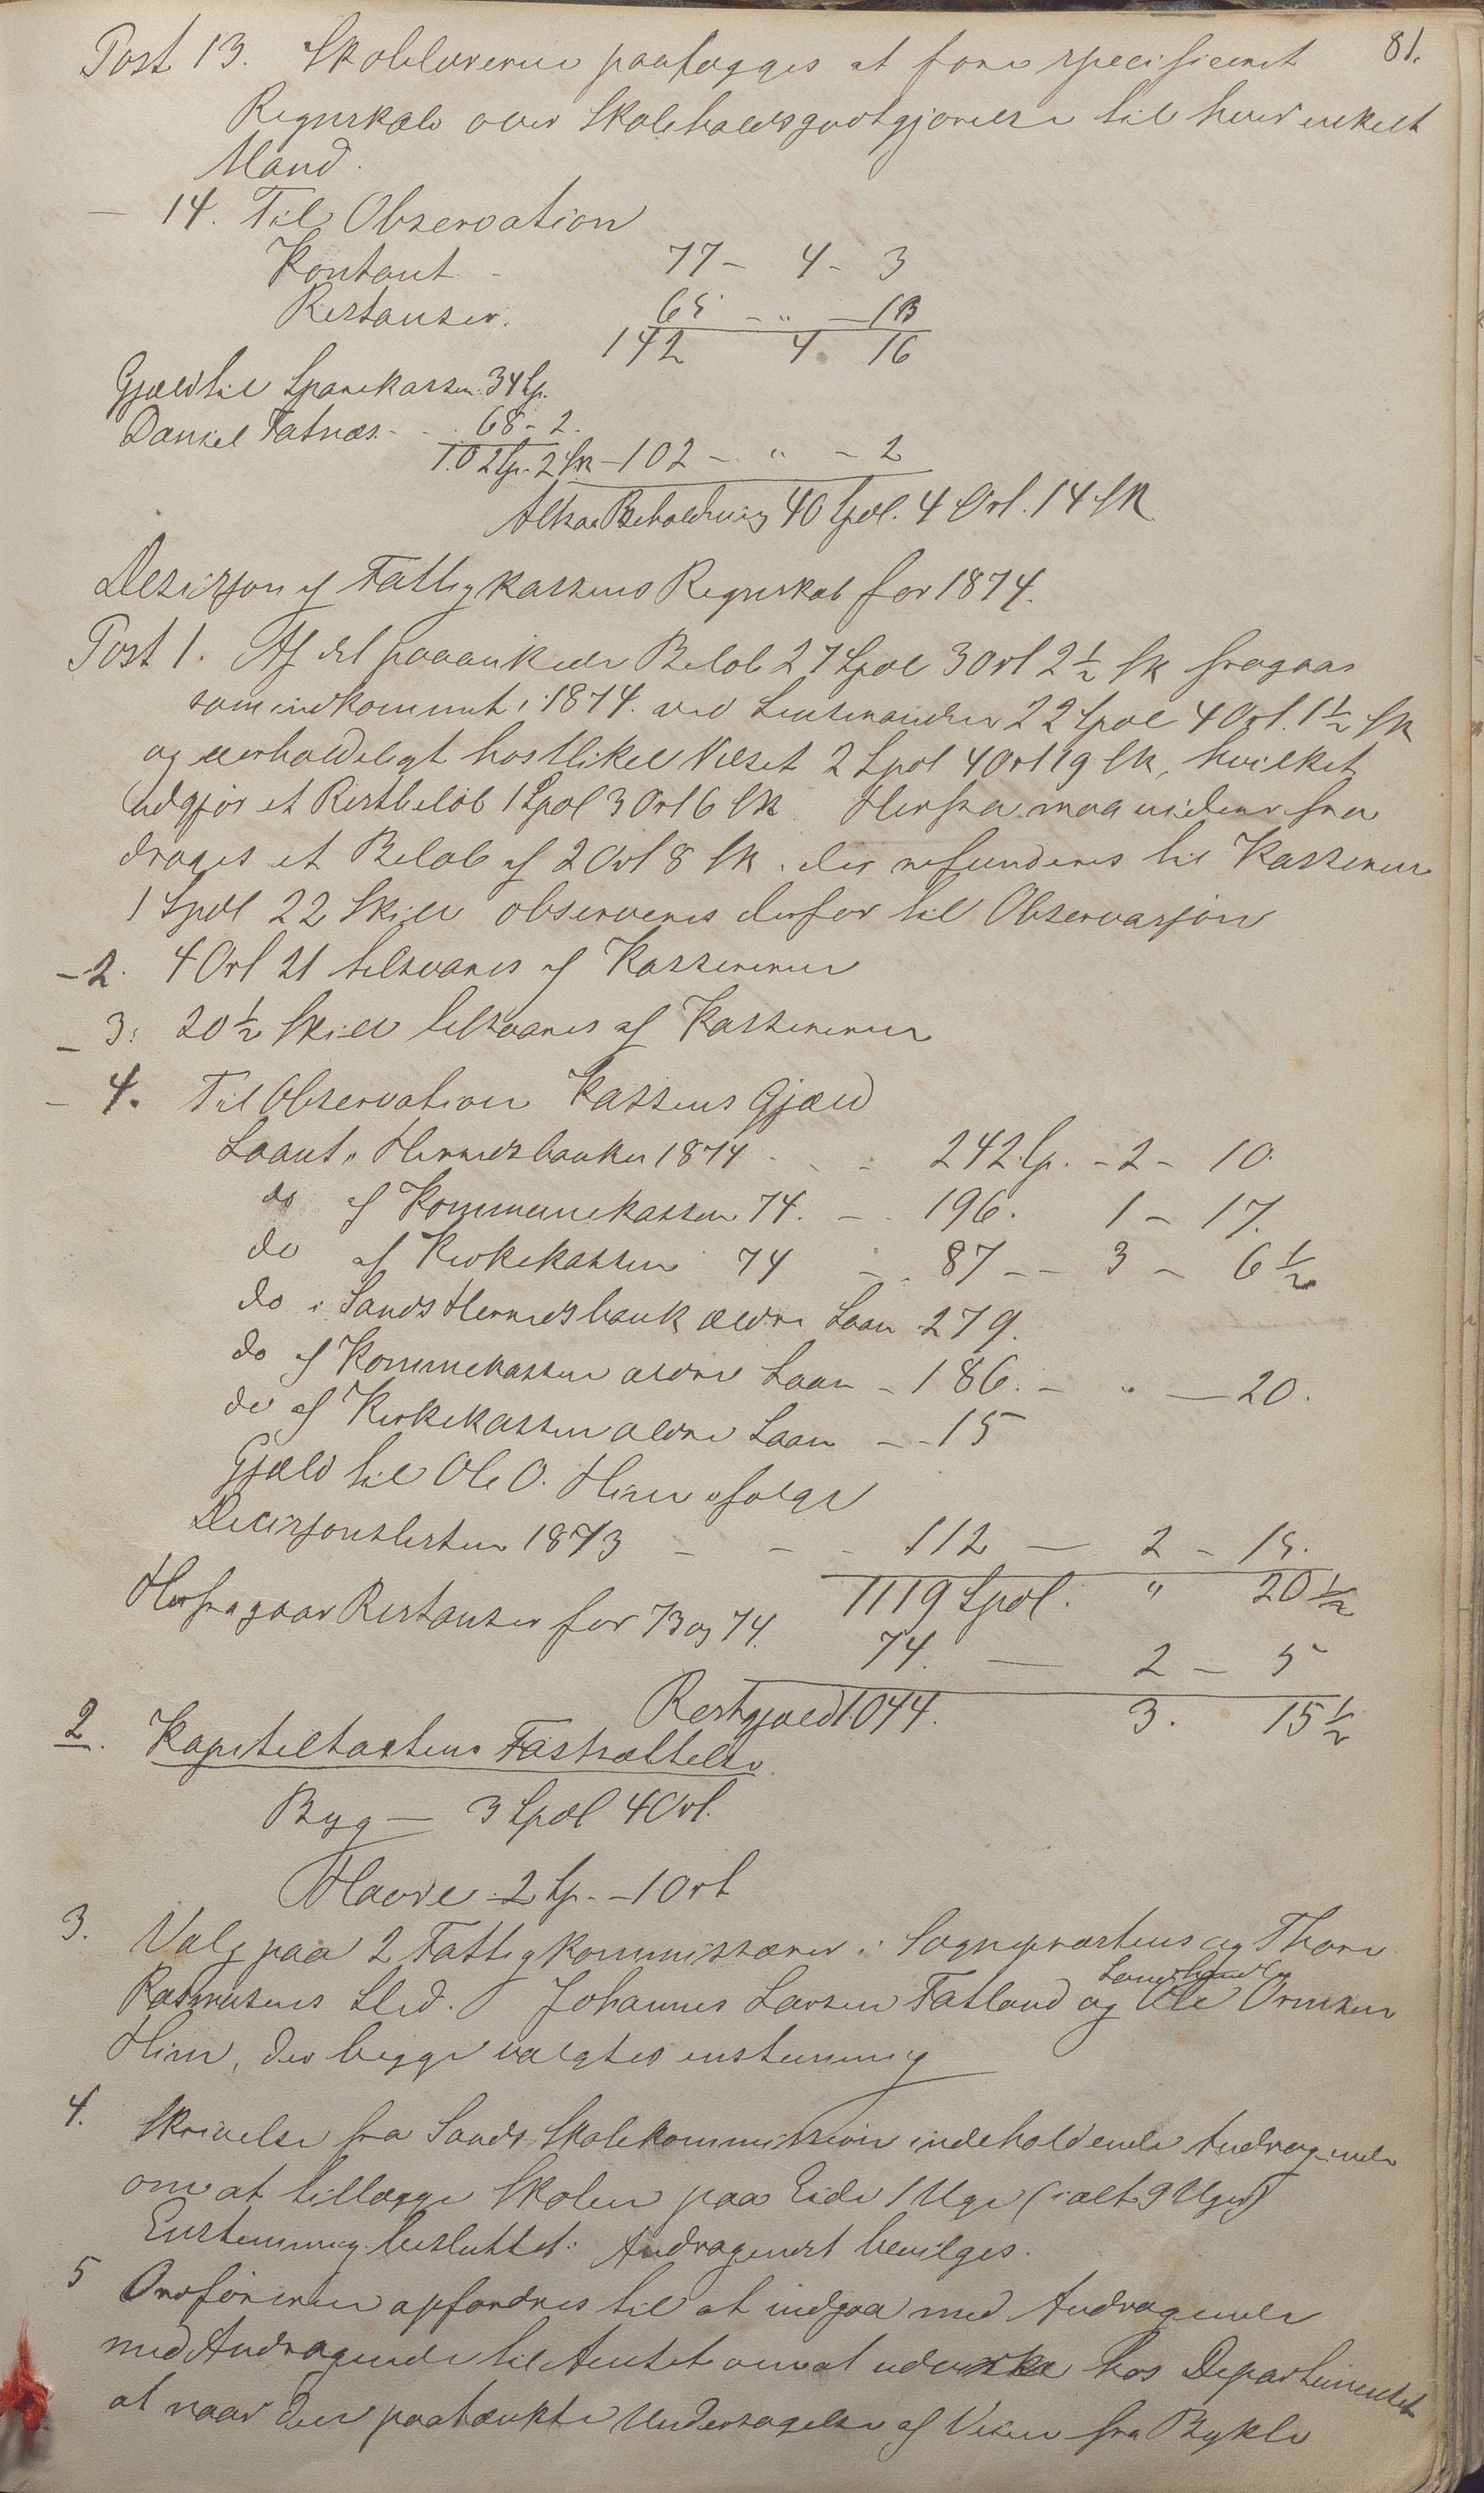 81.
Post 13. Skolelærerne paalægges at føre specificeret
Regnskab over Skoleholdsgodtgjørelse til hver enkelt
Mand.
— 14. Til Observation
Kontant - 77 - 4 - 3
Restanser. 65 - " - 13
142 4 16
Gjæld til Sparekassen 34 Sp.
Daniel Fatnæs - . 68 - 2.
102 Sp. 2 Sk - 102 - " - 2
Altsaa Beholdning 40 Spdl. 4 Ort. 14 Sk
Desisjon af Fattigkassens Regnskab for 1874.
Post 1. Af det paaankede Beløb 27 Spdl 3 Ort 2 1/2 Sk fragaar
som indkommet i 1874. ved Lensmanden 22 Spdl 4 Ort. 1 1/2 Sk
og uerholdeligt hos Mikel Vilset 2 Spdl 4 Ort 19 Sk, hvilket
udgjør et Restbeløb 1 Spdl 3 Ort 6 Sk. Herfra maa videre fra
drages et Beløb af 2 Ort 8 Sk. der refunderes til Kasseren
1 Spdl 22 Skill observeres derfor til Observasjon
— 2. 4 Ort 21 tilsvares af Kassereren
— 3: 20 1/2 Skill tilsvares af Kassereren
— 4. Til Observation Kassens Gjæld
Laant i Herredsbanken 1874 . . - 242 Sp. - 2 - 10.
do af Kommunekassen 74. - . 196. 1 - 17.
do af Kirkekassen 74 - . 87 - - 3 - 6 1/2
do i Sands Herredsbank ældre Laan . 279.
do af Kommekassen ældre Laan - 186. - " — 20.
do af Kirkekassen ældre Laan - - 15
Gjæld til Ole O. Hiim ifølge
Decisjonslisten 1873 - - - 112 — 2 - 15.
1119 Spdl. " 20 1/2
Herfra gaar Restanser for 73 og 74. 74. — 2 - 5
Restgjæld 1044. 3. 15 1/2
2. Kapiteltakstens Fastsættelse
Byg — 3 Spdl 4 Ort.
Havre - 2 Sp. - 1 Ort
3. Valg paa 2 Fattigkommissærer i Sogneprestens og Thore
Rasmusens Sted. Johannes Larsen Fatland og Ole Ormsen
Hiim, der begge valgtes enstemmig
4. Skrivelse fra Sands Skolekommission indeholdende Andragende
om at tillægge Skolen paa Eide 1 Uge (ialt 9 Uger)
Enstemmig besluttet: Andragendet bevilges.
5 Ordføreren opfordres til at indgaa med Andragende
med Andragende til Amtet om at udvirke hos Departementet
at naar den paatænkte Undersøgelse af Veien fra Bykle